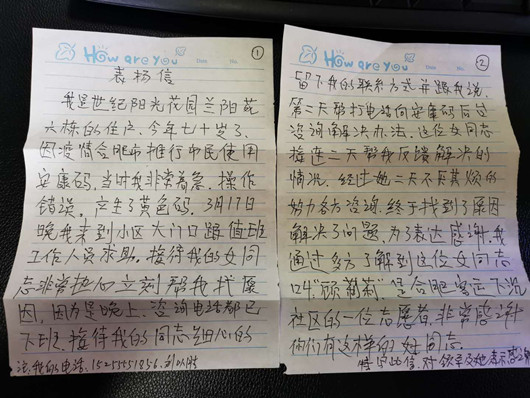 How are you
①
表扬信
我是世纪阳光花园兰阳苑
六栋的住户，今年七十岁了，
因疫情合肥市推行市民使用
安康码，当时我非常着急，操作
错误，产生了黄色码，3月17日
晚我来到小区大门口跟值班
工作人员求助，接待我的女同
志非常热心立刻帮我找原
因，因为是晚上，咨询电话都已
下班，接待我的同志细心的
注：我的电话：
How are you
②
留下我的联系方式并跟我说，
第二天帮打电话向安康码后台
咨询解决办法，这位女同志
接连二天帮我反馈解决的
情况，经过她二天不厌其烦的
努力各方咨询，终于找到了原因
解决了问题，为了表达感谢，我
通过多方了解到这位女同志
叫"顾莉莉"，是合肥
社区的一位志愿者，非常感谢
你们有这样的好同志。
特写此信，对